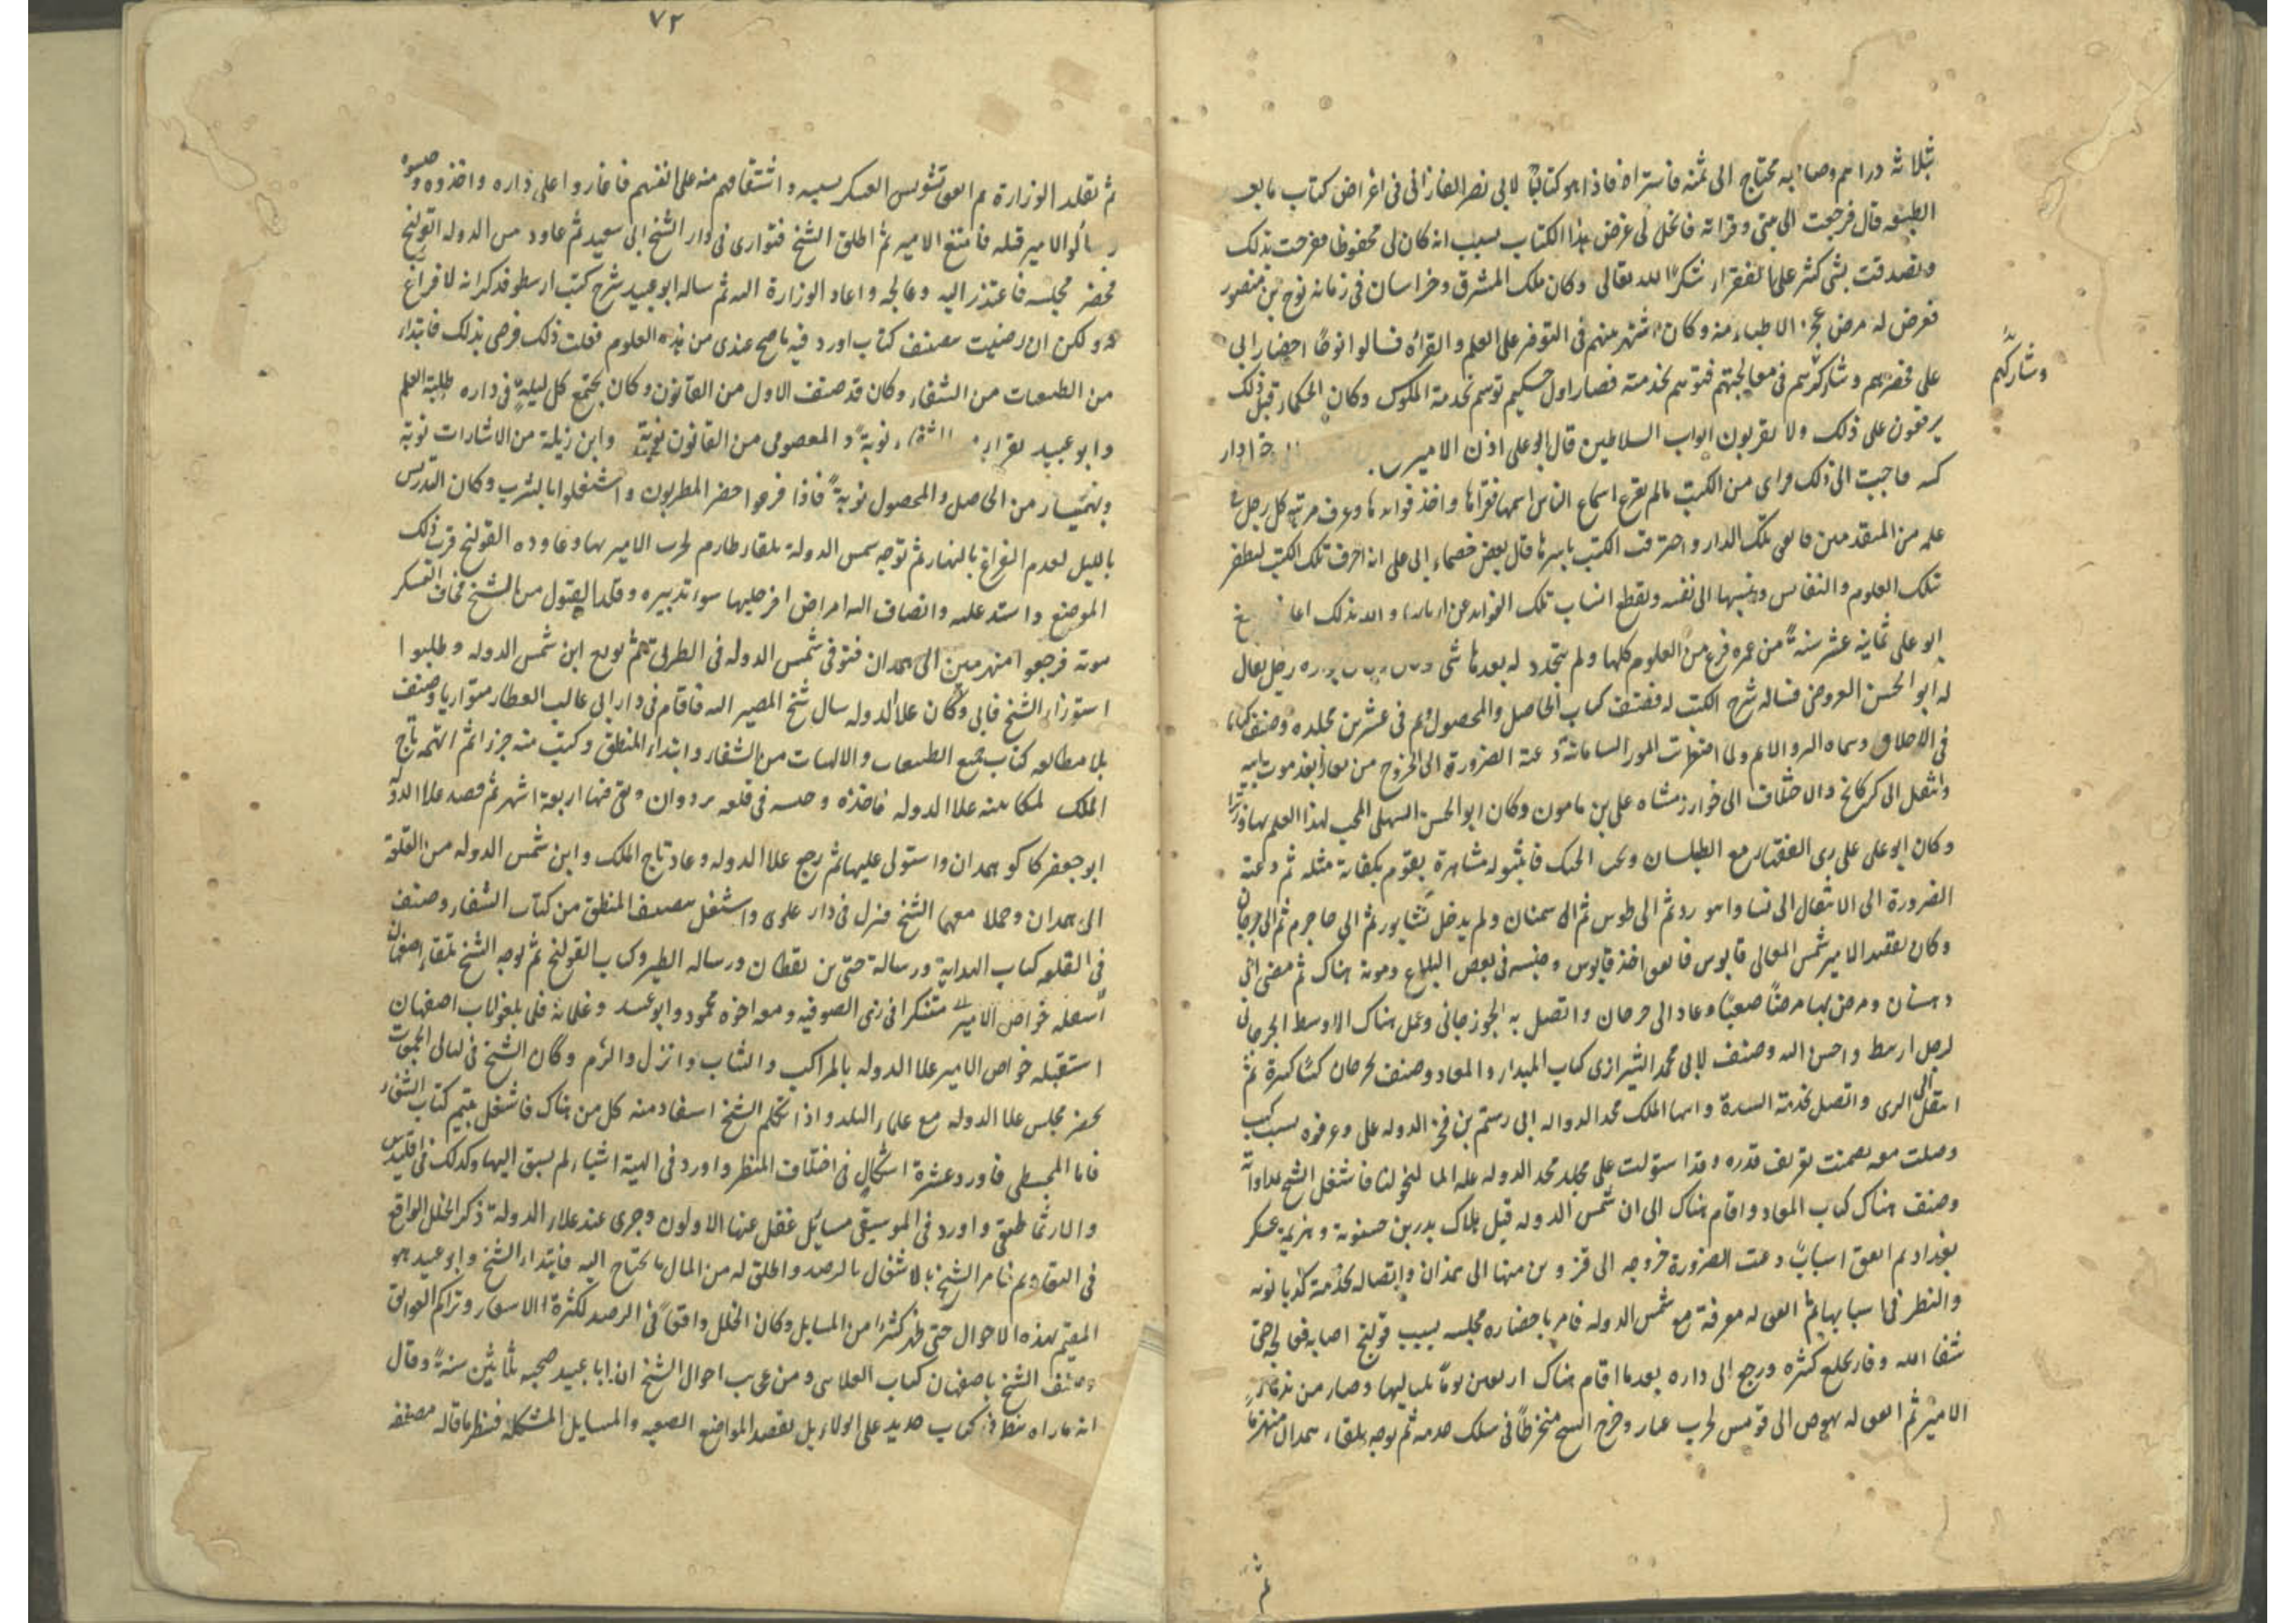 بثلاثة دراهم وصاحبه محتاج الى ثمنه فاشتراه فاذا هو كتاب لابي نصر الفارابي في اغراض كتاب ما بعد
الطبيعه قال فرجعت الى بيتي وقراته فانحل لي غرض هذا الكتاب بسبب انه كان لي محفوظا ففرحت بذلك
وتصدقت بشي كثير على الفقراء شكرا لله تعالى وكان ملك المشرق وخراسان في زمانه نوح بن منصور
فعرض له مرض عجز الاطباء منه وكان اشتهر بينهم في التوفر على العلم والقراة فسالوا نوحا احضار ابي
على محضرهم وشاركهم في معالجتهم فتوسم بخدمته فصار اول حكيم توسم بخدمة الملوك وكان الحكماء قبل ذلك
وشاركهم
يرفعون على ذلك ولا يقربون ابواب السلاطين قال ابو على اذن الامير دار
كتبه فاجبت الى ذلك فراى من الكتب مالم يقرع اسماع الناس اسمها فقراها واخذ فوايدها وعرف مرتبه كل رجل في
علمه من المتقدمين فاتفق تلك الدار واحترقت الكتب باسرها قال بعض خصماء ابي على انه احرق تلك الكتب ليظفر
بتلك العلوم والنفايس وينسبها الى نفسه ويقطع انساب تلك الفوايد عن اربابها والله بذلك
ابو على ثمانية عشر سنة من عمره فرغ من العلوم كلها ولم يتجدد له بعدها شى رجل يقال
له ابو الحسن العروضي فساله شرح الكتب له فصنف كتاب الحاصل والمحصول له في عشرين مجلده وصنف كتابا
في الاخلاق وسماه البر والاثم ولما اضطربت امور السامانية دعته الضرورة الى الخروج من بخارا بعد موت ابيه
وانتقل الى كركانج والاختلاف الى خوارزمشاه على بن مامون وكان ابو الحسن السهلي المحب لهذا العلم بها وزيرا
وكان ابو على على زى الفقهاء مع الطيلسان وتحت الحنك فاثبتوا له مشاهرة يقوم بكفاية مثله ثم دعته
الضرورة الى الانتقال الى نسا وابيورد ثم الى طوس ثم الى سمنان ولم يدخل نشابور ثم الى جاجرم ثم الى جرجان
وكان يقصد الامير شمس المعالي قابوس فاتفق اخذ قابوس وحبسه في بعض القلاع وموته هناك ثم مضى الى
دهستان ومرض بها مرضا صعبا وعاد الى جرجان واتصل به الجوزجاني وعمل هناك الاوسط الجرجاني
لرجل ارسط واحسن اليه وصنف لابي محمد الشيرازى كتاب المبداء والمعاد وصنف بجرجان كتبا كثيرة ثم
انتقل الى الرى واتصل بخدمة السيدة وابنها الملك مجد الدوله ابي رستم بن فخر الدوله على وعرفوه بسبب كتب
وصلت معه تضمنت تعريف قدره وقد استولت على مجد الدوله علة الماليخوليا فاشتغل الشيخ بمداواته
وصنف هناك كتاب المعاد واقام هناك الى ان شمس الدوله قبل هلاك بدر بن حسنويه وهزيمة عسكر
بغداد ثم اتفق اسبابا دعت الضرورة خروجه الى قزوين منها الى همذان واتصاله بخدمة كدبانويه
والنظر في اسبابها ثم اتفق له معرفة مع شمس الدوله فامر باحضاره مجلسه بسبب قولنج اصابه فعالجه حتى
شفا الله وفاز بخلع كثيره ورجع الى داره بعد ما اقام هناك اربعين يوما بلياليها وصار من ندماء
الامير ثم اتفق له نهوض الى قرميس لحرب عناز وخرج الشيخ منخرطا في سلك خدمه ثم توجه تلقاء همدان منهزما
ثم
٧٢
ثم تقلد الوزارة ثم اتفق تشويش العسكر بسببه واشفاقهم منه على انفسهم فاغاروا على داره واخذوه وحبسوه
وسالوا الامير قتله فامتنع الامير ثم اطلق الشيخ فتوارى في دار الشيخ ابي سعيد ثم عاود شمس الدوله القولنج
فحضر مجلسه فاعتذر اليه وعالجه واعاد الوزارة اليه ثم ساله ابو عبيد شرح كتب ارسطو فذكر انه لا فراغ
له ولكن ان رضيت بتصنيف كتاب اورد فيه ما صح عندى من هذه العلوم فعلت ذلك فرضى بذلك فابتداء
من الطبيعيات من الشفاء وكان قد صنف الاول من القانون وكان يجتمع كل ليلة في داره طلبة العلم
وابو عبيد يقراء من الشفاء نوبة والمعصومي من القانون نوبة وابن زيلة من الاشارات نوبة
وبهمنيار من الحاصل والمحصول نوبة فاذا فرغوا حضر المطربون واشتغلوا بالشرب وكان التدريس
بالليل لعدم الفراغ بالنهار ثم توجه شمس الدولة تلقاء طارم لحرب الامير بها وعاوده القولنج قرب ذلك
الموضع واشتد عليه وانضاف اليه امراض اخر جلبها سوء تدبيره وقله القبول من الشيخ فخاف العسكر
موته فرجعوا منهزمين الى همدان فتوفى شمس الدوله في الطريق ثم بويع ابن شمس الدوله وطلبوا
استوزار الشيخ فابى وكان علاء الدوله سال شيخ المصير اليه فاقام في دار ابي غالب العطار متواريا وصنف
بلا مطالعه كتاب جميع الطبيعيات والالهيات من الشفاء وابتداء المنطق وكتب منه جزءا ثم اتهمه تاج
الملك لمكاتبته علاء الدوله فاخذه وحبسه في قلعه بردوان وبقى فيها اربعة اشهر ثم قصد علاء الدوله
ابو جعفر كاكو همدان واستولى عليها ثم رجع علاء الدوله وعاد تاج الملك وابن شمس الدوله من القلعة
الى همدان وحملا معهما الشيخ فنزل في دار علوى واشتغل بتصنيف المنطق من كتاب الشفاء وصنف
في القلعه كتاب الهداية ورسالة حى بن يقظان ورساله الطير وكتاب القولنج ثم توجه الشيخ تلقاء اصفهان
متنكرا في زى الصوفيه ومعه اخوه محمود وابو عبيد وغلامه فلما بلغوا باب اصفهان
استقبله خواص الامير علاء الدوله بالمراكب والثياب وانزل واكرم وكان الشيخ في ليالى الجمعات
يحضر مجلس علاء الدوله مع علماء البلد واذا تكلم الشيخ استفاد منه كل من هناك فاشتغل بتتميم كتاب الشفاء
فاما المجسطي فاورد عشرة اشكال في اختلاف المنظر واورد في الهيئة اشياء لم يسبق اليها وكذلك في اقليدس
والارثماطيقي واورد في الموسيقى مسايل غفل عنها الاولون وجرى عند علاء الدولة ذكر الخلل الواقع
في التقاويم فامر الشيخ بالاشتغال بالرصد واطلق له من المال ما يحتاج اليه فابتداء الشيخ وابو عبيد هو
المقيم لهذه الاحوال حتى ظهر كثيرا من المسايل وكان الخلل واقعا في الرصد لكثرة الاسفار وتراكم العوايق
وصنف الشيخ باصفهان كتاب العلائي ومن غريب احوال الشيخ ان ابا عبيد صحبه ثلاثين سنة وقال
انه ما راه ينظر في كتاب جديد على الولاء بل يقصد المواضع الصعبه والمسايل المشكله فينظر ما قاله مصنفه